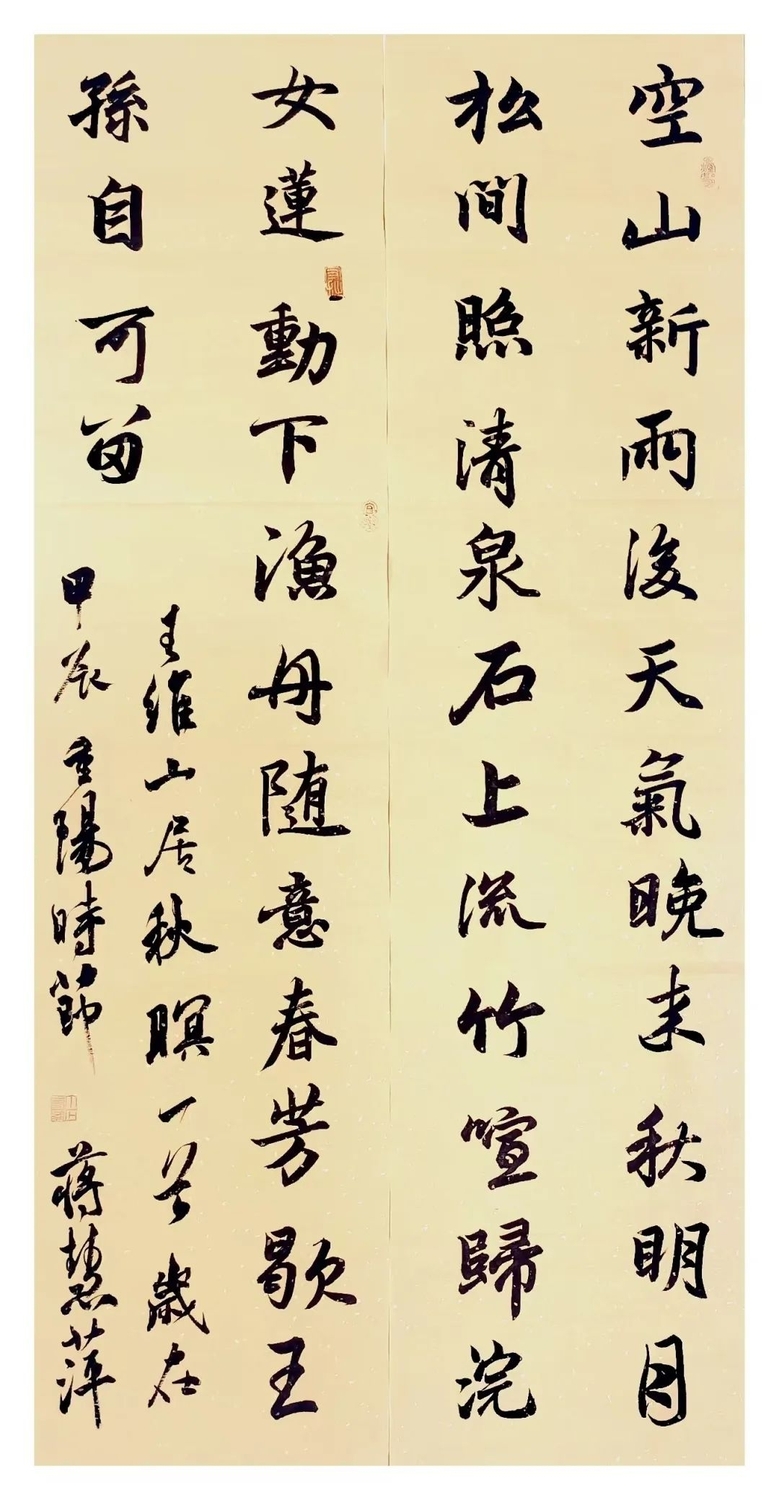 空山新雨後天氣晚来秋明月
松間照清泉石上流竹喧歸浣
女蓮動下漁舟随意春芳歇王
孫自可留
王維山居秋暝一首歲在
甲辰重陽時節 蔣慧萍